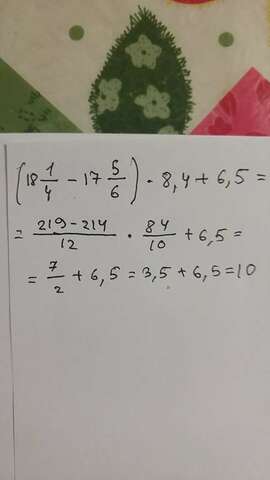 (18 1/4 - 17 5/6) · 8,4 + 6,5 =
= 219-214/12 · 84/10 + 6,5 =
= 7/2 + 6,5 = 3,5 + 6,5 = 10